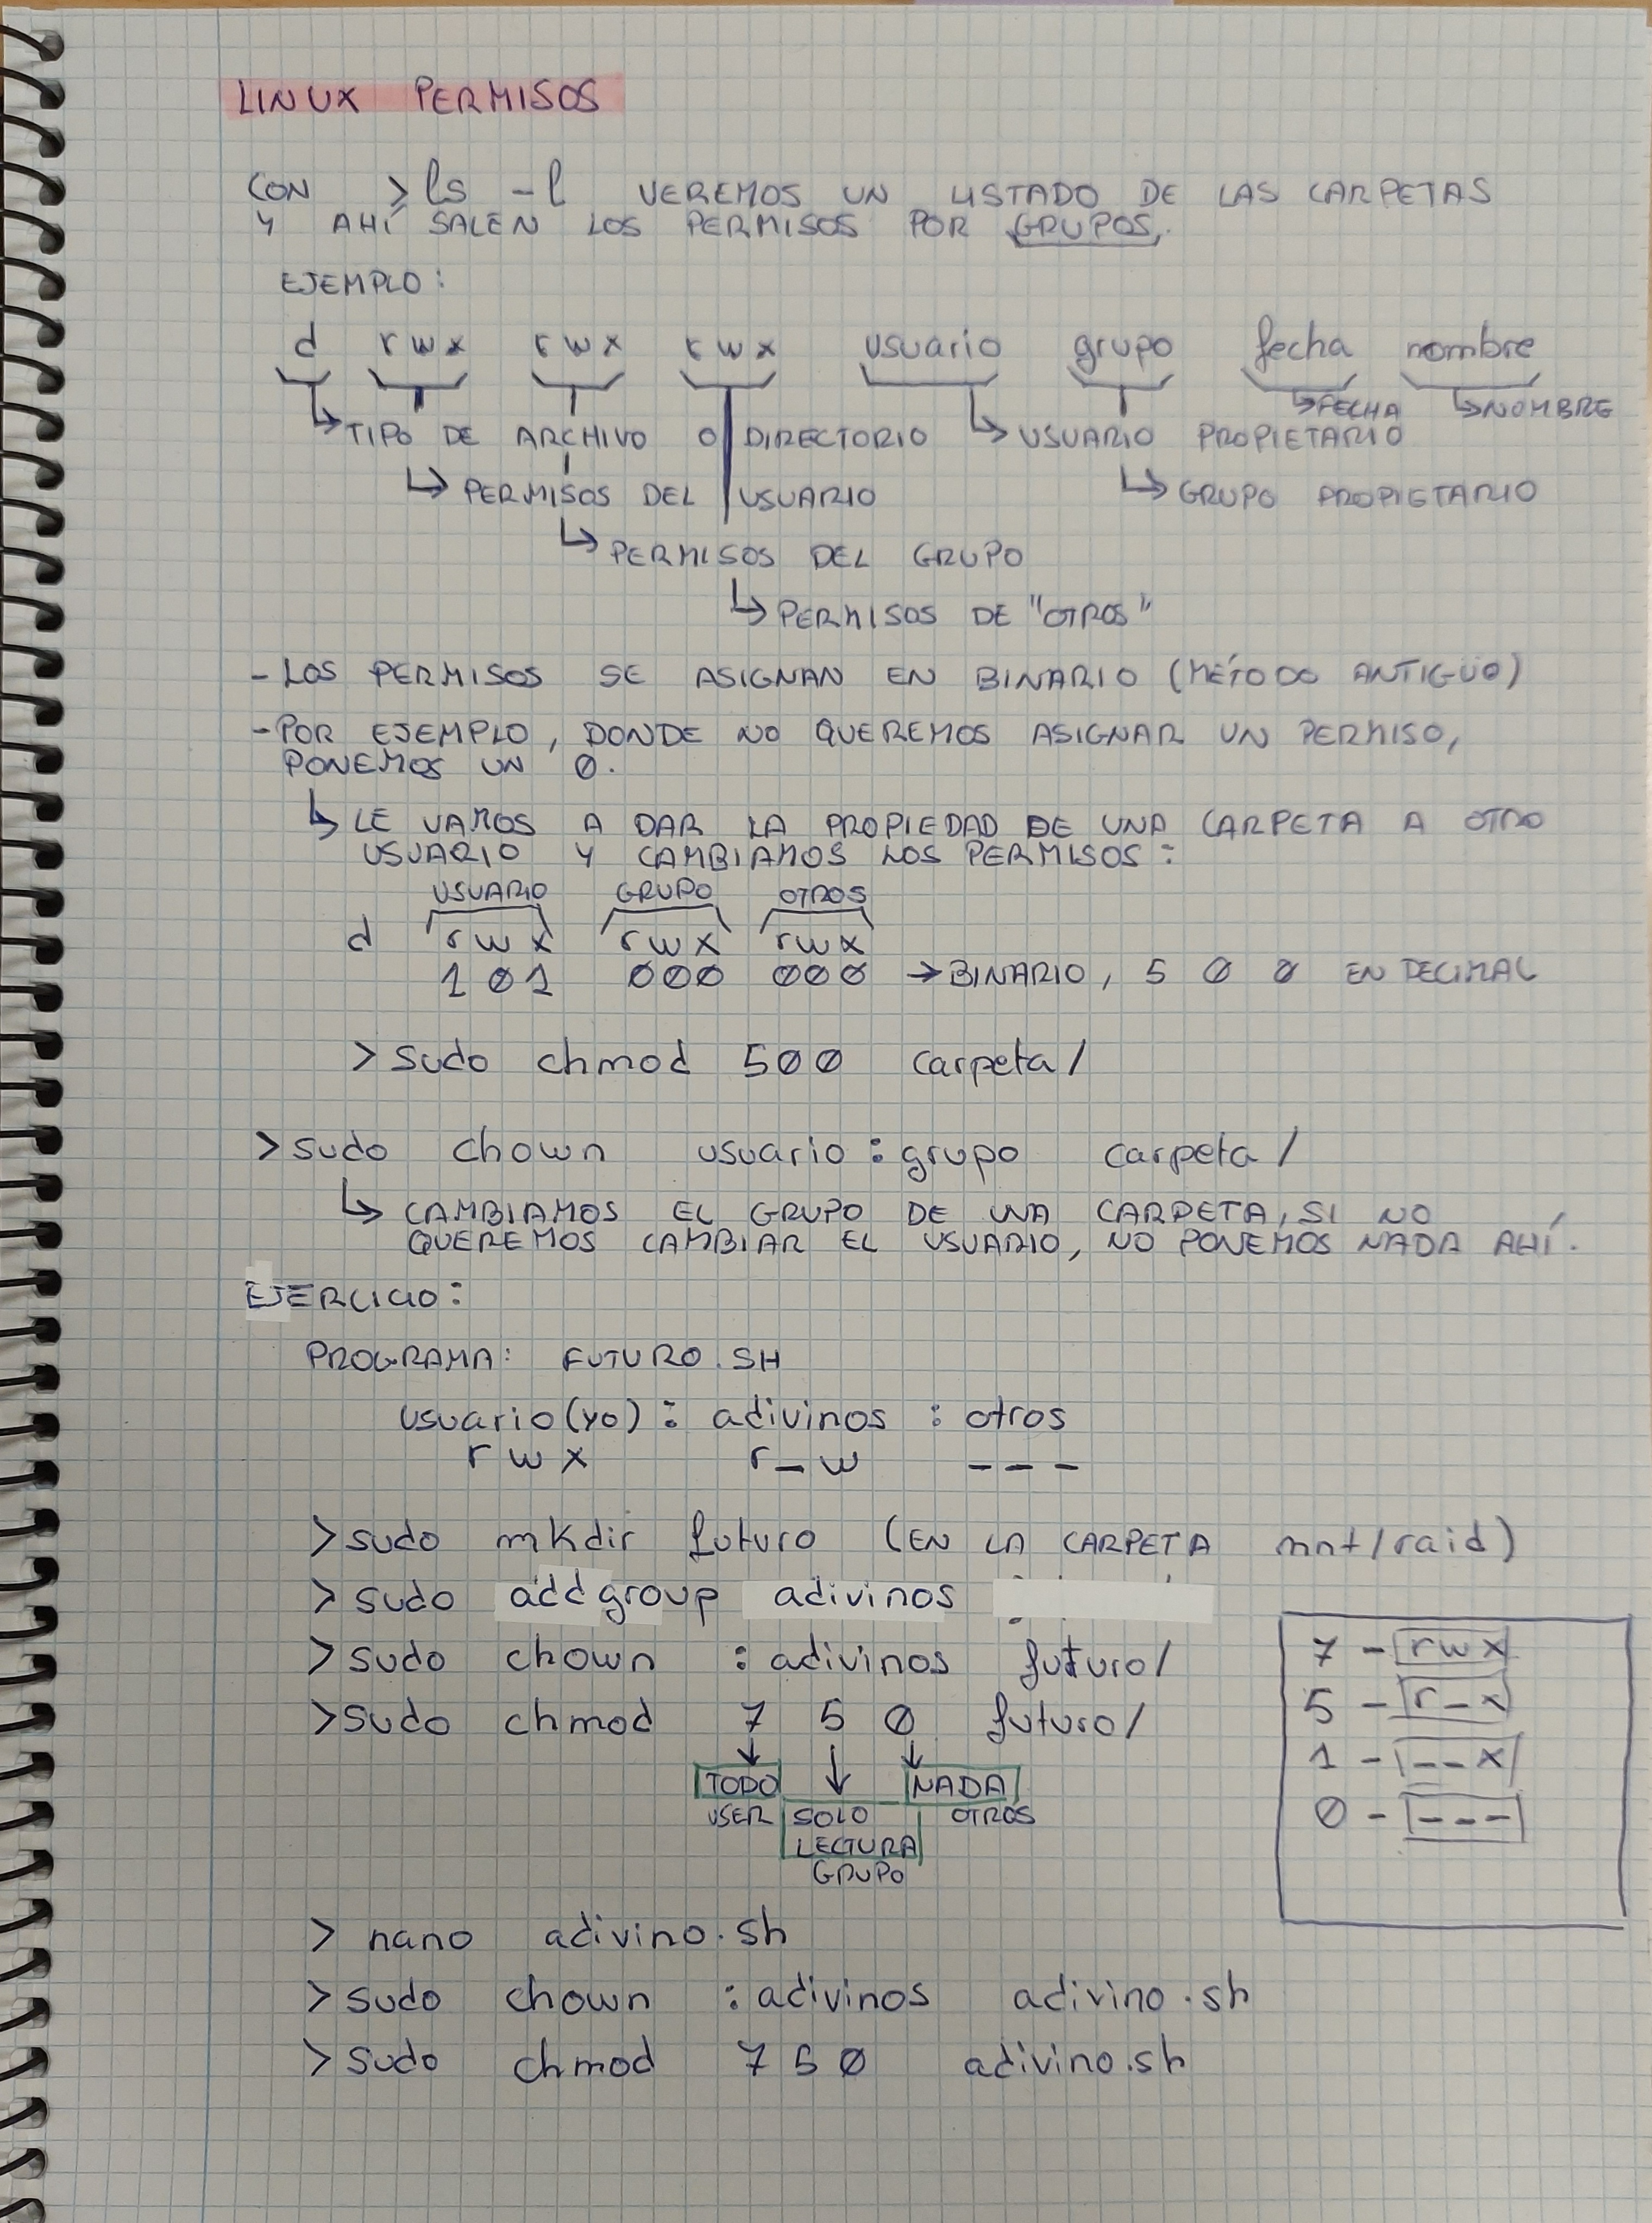 LINUX PERMISOS
CON >ls -l VEREMOS UN LISTADO DE LAS CARPETAS
Y AHÍ SALEN LOS PERMISOS POR GRUPOS.
EJEMPLO:
d rwx rwx rwx usuario grupo fecha nombre
↳FECHA ↳NOMBRE
↳TIPO DE ARCHIVO O DIRECTORIO ↳USUARIO PROPIETARIO
↳PERMISOS DEL USUARIO ↳GRUPO PROPIETARIO
↳PERMISOS DEL GRUPO
↳PERMISOS DE "OTROS"
- LOS PERMISOS SE ASIGNAN EN BINARIO (MÉTODO ANTIGUO)
- POR EJEMPLO, DONDE NO QUEREMOS ASIGNAR UN PERMISO,
PONEMOS UN 0.
↳ LE VAMOS A DAR LA PROPIEDAD DE UNA CARPETA A OTRO
USUARIO Y CAMBIAMOS LOS PERMISOS:
USUARIO GRUPO OTROS
d rwx rwx rwx
101 000 000 → BINARIO, 5 0 0 EN DECIMAL
> sudo chmod 500 carpeta/
> sudo chown usuario:grupo carpeta/
↳ CAMBIAMOS EL GRUPO DE UNA CARPETA, SI NO
QUEREMOS CAMBIAR EL USUARIO, NO PONEMOS NADA AHÍ.
EJERCICIO:
PROGRAMA: FUTURO.SH
usuario(yo) : adivinos : otros
rwx r_w ---
> sudo mkdir futuro (EN LA CARPETA mnt/raid)
> sudo addgroup adivinos
> sudo chown :adivinos futuro/
> sudo chmod 7 5 0 futuro/
TODO NADA
USER SOLO OTROS
LECTURA
GRUPO
7 - rwx
5 - r-x
1 - --x
0 - ---
> nano adivino.sh
> sudo chown :adivinos adivino.sh
> sudo chmod 750 adivino.sh